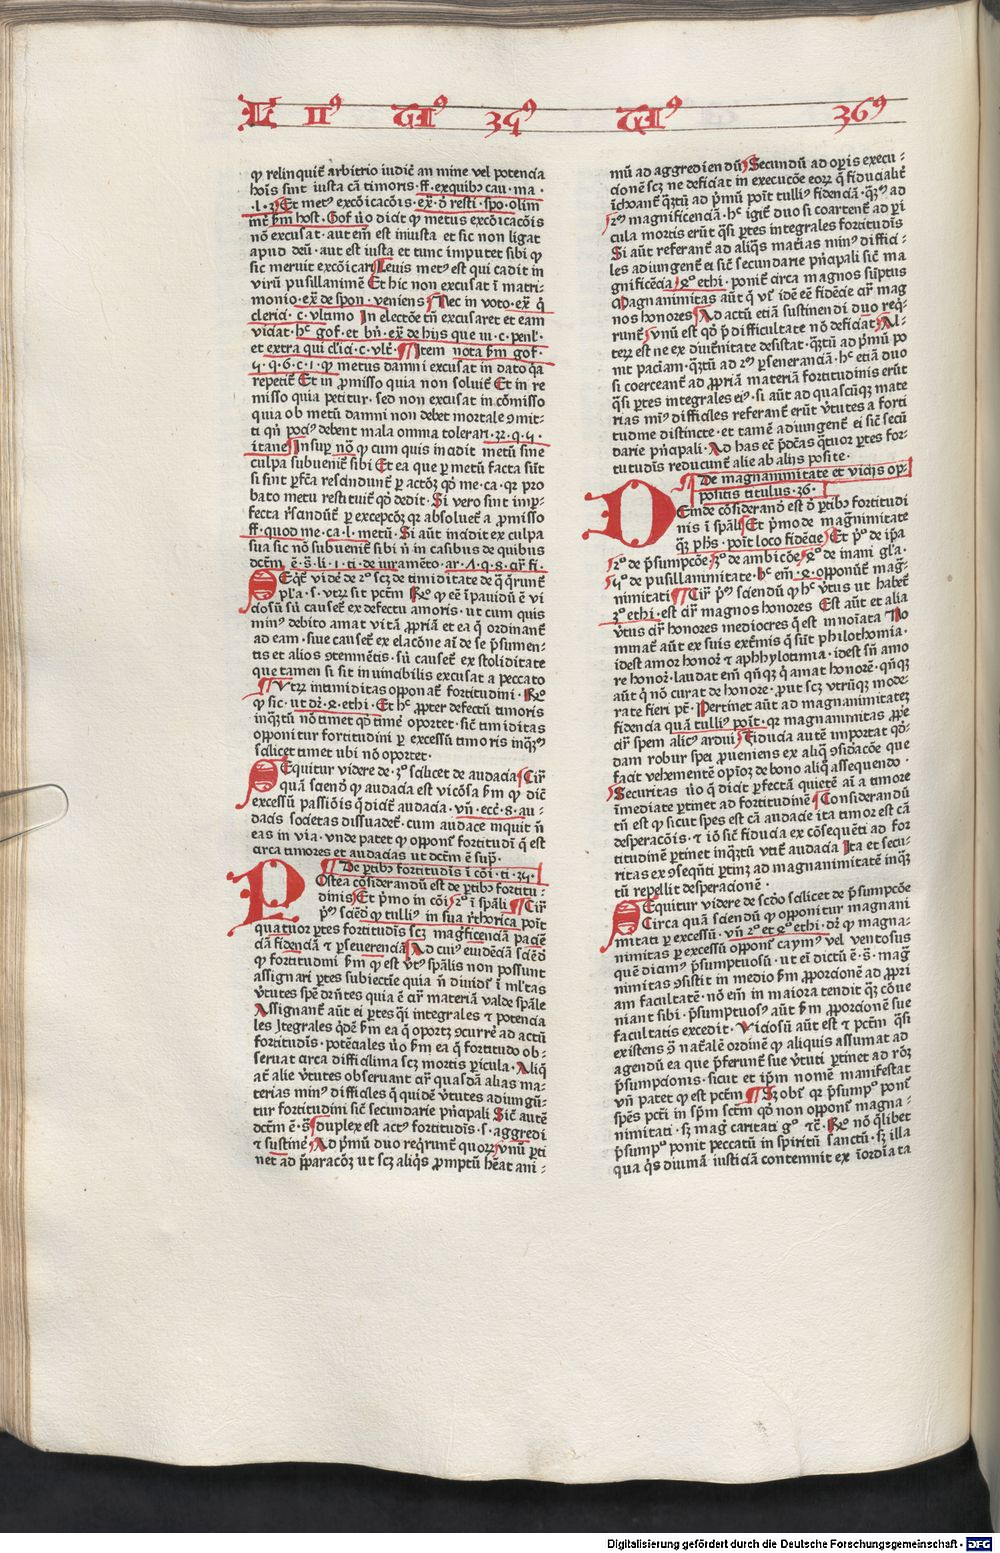 L II⁹ TI⁹ 35⁹ TI⁹ 36⁹
ꝙ relinquiť arbitrio iudiċ an mine vel potencia
hoīs sint iusta cā timoris · ff · ex quibꝫ cau · ma ·
· l · 2 Et metꝰ excōicacōis · ex̄ · ď resti · spo · olim
mť ẜm host · Gof ṽo dicit ꝙ metus excōicacōis
nō excusat · aut em̄ est iniusta et sic non ligat
apud deū · aut est iusta et tunc imputet sibi ꝙ
sic meruit excōicari Leuis metꝰ est qui cadit in
virū pusillanimē Et hic non excusat ī matri-
monio · ex̄ · de spon · veniens Nec in voto · ex̄ · q̄
clerici · c · vltimo In electōe tn̄ excusaret et eam
viciat · hᶜ gof · et bn̄ · ex̄ · de hijs que vi · c · penľ ·
et extra qui cľici · c · vlť · Item nota ẜm gof ·
15 · q · 6 · c · 1 · ꝙ metus damni excusat in dato qa
repetiť Et in ꝓmisso quia non soluiť Et in re
misso quia petitur · sed non excusat in cōmisso
quia ob metū damni non debet mortale ꝯmit-
ti qn̄ pociꝰ debent mala omnia tolerari · 32 · q · 5 ·
itane Insuꝑ nō ꝙ cum quis incidit metū sine
culpa subueniť sibi Et ea que ꝑ metū facta sūt
si sint ꝑfēa rescindunť ꝑ actōꝫ qď me · ca · qr ꝓo
bato metu restituiť qď dedit · Si vero sint imꝑ-
fecta rescindūť ꝑ excepcōꝫ qr absoluet a ꝓmisso
ff · quod me · ca · l · metū · Si aūt incidit ex culpa
sua sic nō subueniť sibi ň in casibus de quibus
dc̄tm ē · s̄ · li · 1 · ti · de iuramēto · ar · 1 · q · 8 · cir̄ fi ·
SEqť videť de 2º scꝫ de timiditate de q̄ q̄runť
pľa · s · vtꝝ sit pctm̄ Rº ꝙ eē īpauidū ē vi
ciosū sū causeť ex defectu amoris · vt cum quis
minꝰ debito amat vitā ꝓpriā et ea q̄ ordinanť
ad eam · siue causeť ex elacōne aī de se p̄sumen-
tis et alios ꝯtemnētis · sū causeť ex stoliditate
que tamen si sit inuincibilis excusat a peccato
Vtꝝ intimiditas opponať fortitudini · Rº
ꝙ sic · ut dꝛ · 2 · ethi · Et hᶜ ꝓpter defectū timoris
inqͣꝫtū nō timet qď timē oportet · sic̄ timiditas
opponitur fortitudini ꝑ excessū timoris inqͣꝫº
scilicet timet ubi nō oportet ·
SEquitur videre de · 3º scilicet de audacia Cir̄
quā sciendū ꝙ audacia est vicōsa ẜm ꝙ dic̄
excessū passiōis q̄ diciť audacia · vn̄ · ecc̄ · 8 · au-
dacis societas dissuadeť · cum audace inquit n̄
eas in via · vnde patet ꝙ opponiť fortitudī q̄ est
circa timores et audacias ut dc̄tm ē supͣ ·
De ꝑtibꝫ fortitudis ī cōi · ti · 35 ·
POstea cōsiderandū est de ꝑtibꝫ fortitu-
dinis Et p̄mo in cōi 2º ī spāli Cir̄
p̄ᵐ sciēd̄ ꝙ tulliꝰ in sua rhorica poīt
quatuor ꝑtes fortitudis scꝫ magͣficenciā paciē
ciā fidenciā et ꝑseuerenciā Ad cuiꝰ euidēciā sciēď
ꝙ fortitudini ẜm ꝙ est v̄tꝰ sp̄alis non possunt
assignari ꝑtes subiectie quia n̄ diuidiť ī mľtas
v̄tutes spē dr̄ntes quia ē cir̄ materiā valde sp̄ale
Assignanť aūt ei ꝑtes qͣi integrales et potencia
les Jtegrales qͥdē ẜm ea q̄ oportꝫ ꝯcurrē ad actū
fortitudis · potēciales ṽo ẜm ea q̄ fortitudo ob-
seruat circa difficilima scꝫ mortis ꝑicula · Aliq̄
ať alie v̄tutes obseruant cir̄ quasdā alias ma-
terias minꝰ difficiles q̄ quidē v̄tutes adiungū-
tur fortitudini sic̄ secundarie pn̄cipali Sic̄ autē
dc̄tm ē · s̄ duplex est actꝰ fortitudis · s · aggredi
et sustinē Ad p̄mū duo reqͥrunť quoꝝ vnū ꝑti
net ad p̄paracōꝫ ut scꝫ aliqͥs ꝓmptū heat ani-
mū ad aggrediendū Secundū ad oꝑis execu-
cionē scꝫ ne deficiat in execucōe eoꝝ q̄ fiducialiť
īchoanť qͣꝫtū ad p̄mū poīt tulliꝰ fidenciā · qͣꝫº ad
2ᵐ magnificenciā · hᶜ igiť duo si coartenť ad ꝑi
cula mortis erūt qͣsi ꝑtes integrales fortitudīs
Si aūt referanť ad aliqͣs matīas minꝰ diffici-
les adiungenť ei sic̄ secundarie pn̄cipali sic̄ ma
gnificēcia 4º ethi · poniť circa magnos sūptus
Magnanimitas aūt q̄ vꝫ idē eē fidēcie cir̄ mag
nos honores Ad actū etiā sustinendi duo reqͥ-
runť vnū est qď p̄ difficultate nō deficiat Al-
teꝝ est ne ex diuťnitate desistat · qͣꝫtū ad p̄mū po
nit paciam · qͣꝫtū ad 2ᵐ ꝑseueranciā · hᶜ etiā duo
si coerceanť ad ꝓpriā materiā fortitudinis erūt
qͣsi ꝑtes integrales eiꝰ · si aūt ad quascūqꝫ mate
rias minꝰ difficiles referanť erūt v̄tutes a forti
tudine distincte · et tamē adiungenť ei sic̄ secū
darie pn̄cipali · Ad has ec̄ p̄dc̄as qͣtuor ꝑtes for-
titudīs reducunť alie ab alijs posite ·
De magnanimitate et vicijs op-
positis titulus · 36 ·
DEinde cōsiderand̄ est ď ꝑtibꝫ fortitudi
nis ī spāli Et p̄mo de magͣnimitate
qͣꝫ pħs · poīt loco fidēcie Et p̄º de ip̄a
2º de p̄sumpcōe 3º de ambicōe 4º de inani glͣa ·
5º de pusillanimitate · hᶜ em̄ · 4 · opponūť magͣ-
nimitati Cir̄ p̄ᵐ sciendū ꝙ hᶜ v̄tus ut habeť
4º ethi · est cir̄ magnos honores Est aūt et alia
v̄tus cir̄ honores mediocres q̄ est innoīata No
minať aūt ex suis exťmis q̄ sūt philothomia ·
idest amor honoꝝ et aphhylotimia · idest sn̄ amo
re honoꝝ · laudat em̄ qn̄qꝫ q̄ amat honorē · qn̄qꝫ
aūt q̄ nō curat de honore · ꝓut scꝫ vtrūqꝫ mode
rate fieri pť · Pertinet aūt ad magnanimitatē
fidencia quā tulliꝰ poīt · qr magnanimitas ꝓprie
cir̄ spem alicꝰ ardui Fiducia autē importat qď-
dam robur spei ꝓueniens ex aliqͣ ꝯsidacōe que
facit vehementē opīoꝫ de bono aliqͦ assequendo ·
Securitas ṽo q̄ dicit ꝑfectā quietē aī a timore
īmediate ꝑtinet ad fortitudinē Considerandū
tn̄ est ꝙ sicut spes est cā audacie ita timor est cā
desperacōis · et iō sic̄ fiducia ex cōsequēti ad for
titudinē ꝑtinet inqͣꝫtū vtiť audacia Ita et secu-
ritas ex ꝯseqn̄ti ꝑtinꝫ ad magnanimitatē inqͣꝫ
tū repellit desperacionē ·
SEquitur videre de sc̄do scilicet de p̄sumpcōe
Circa quā sciendū ꝙ opponitur magnani
mitati ꝑ excessū · vn̄ 2º et 4º ethi · dꝛ ꝙ magna-
nimitas ꝑ excessū opponiť caymꝰ vel ventosus
quē dicimꝰ p̄sumptuosū · ut ei dictū ē · s̄ · magͣ
nimitas ꝯsistit in medio ẜm ꝓporcionē ad ꝓpri
am facultatē · nō em̄ in maiora tendit qͣꝫ cōue
niant sibi · p̄sumptuosꝰ aūt ẜm ꝓporcionē sue
facultatis excedit · Viciosū aūt est et pctm̄ qͣsi
existens ꝯͣ natͣalē ordinē ꝙ aliquis assumat ad
agendū ea que p̄ferunť sue v̄tuti ꝑtinet ad rōꝫ
p̄sumpcionis · sicut et ip̄m nomē manifestat
vn̄ patet ꝙ est pctm̄ Sꝫ obiť qr p̄sumpº poniť
spēs pctī in spm̄ sctm̄ qď non opponiť magna-
nimitati · sꝫ magͣ caritati gº etc̄ · Rº nō q̄libet
p̄sumpº ponit peccatū in spiritū sanctū · sꝫ illa
qua qͥs diuinā iusticiā contemnit ex īordīata
Digitalisierung gefördert durch die Deutsche Forschungsgemeinschaft - DFG